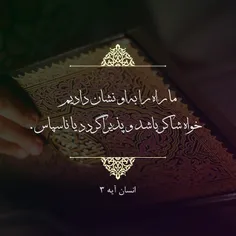 ما راه را به او نشان دادیم
خواه شاکر باشد و پذیرا گردد یا ناسپاس .
انسان آیه ۳